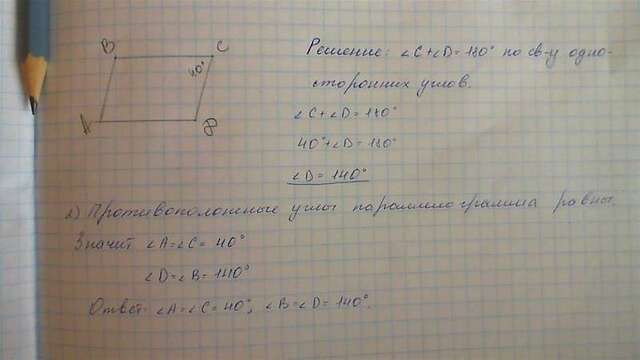 B C
40°
A D
Решение: ∠C+∠D=180° по св-у одно-
сторонних углов.
∠C+∠D=180°
40°+∠D=180°
∠D=140°
2) Противоположные углы параллелограмма равны.
Значит ∠A=∠C=40°
∠D=∠B=140°
Ответ: ∠A=∠C=40°, ∠B=∠D=140°.